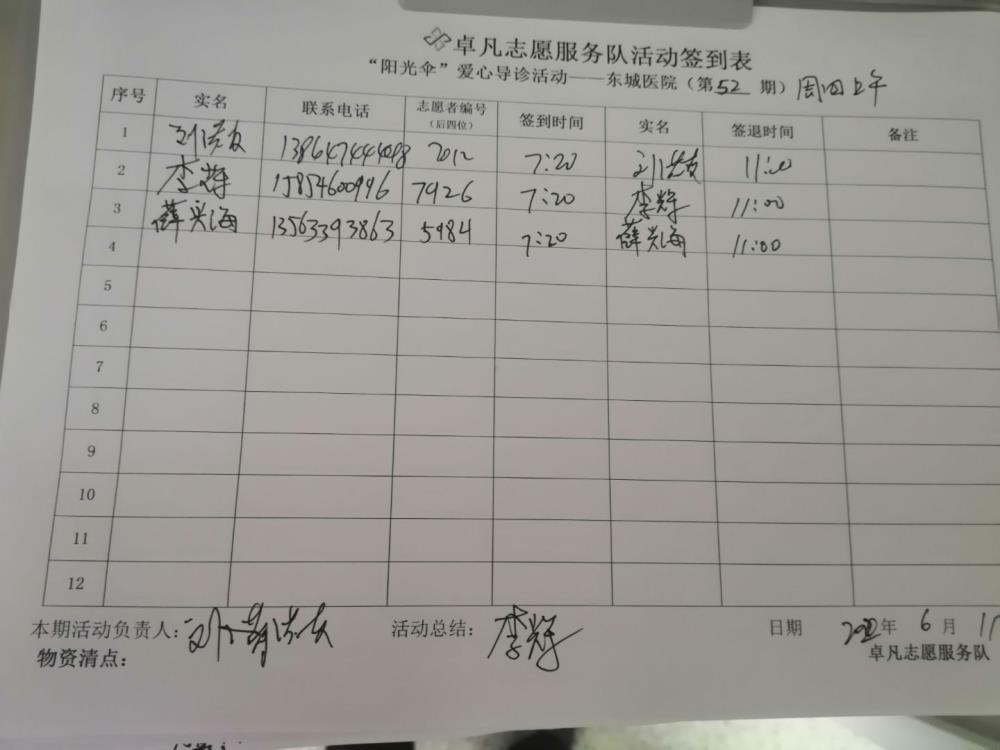 卓凡志愿服务队活动签到表
“阳光伞”爱心导诊活动——东城医院（第52期）周四上午
序号 实名 联系电话 志愿者编号（后四位） 签到时间 实名 签退时间 备注
1 刘洪友 2012 7:20 刘洪友 11:00
2 李辉 15854600996 7926 7:20 李辉 11:00
3 薛兴海 13563393863 5984 7:20 薛兴海 11:00
4
5
6
7
8
9
10
11
12
本期活动负责人： 刘 洪友 活动总结： 李辉 日期 年 6 月 11
物资清点： 卓凡志愿服务队